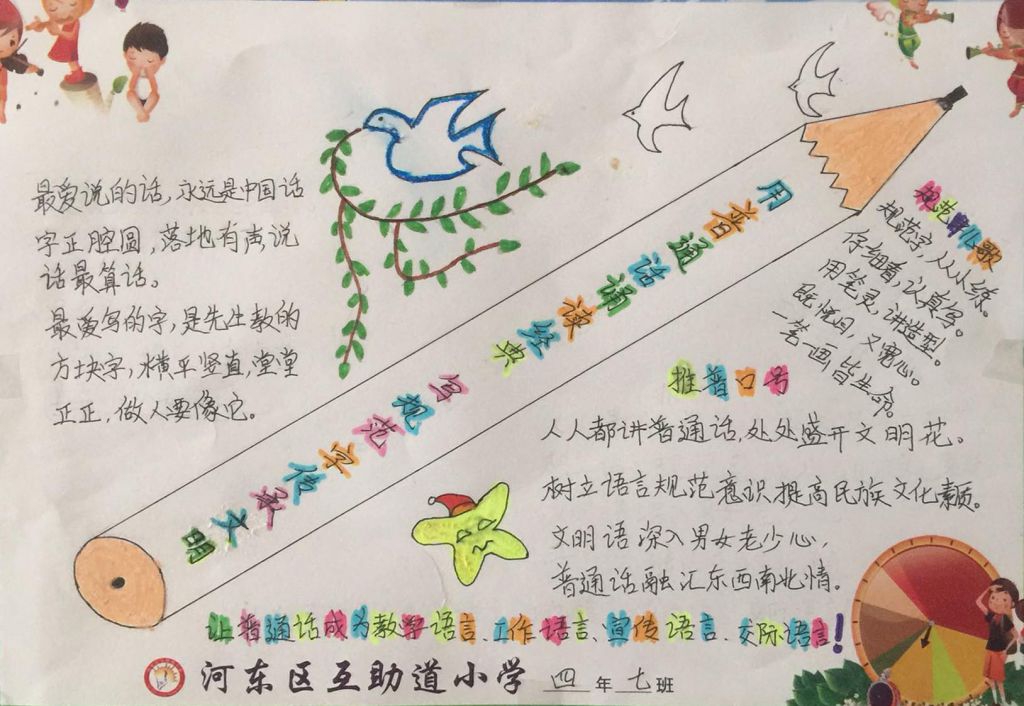 最爱说的话，永远是中国话
字正腔圆，落地有声说
话最算话。
最爱写的字，是先生教的
方块字，横平竖直，堂堂
正正，做人要像它。
用普通话诵读经典
写规范字传承文明
规范字儿歌
规范字，人人练。
仔细看，认真写。
用笔灵，讲造型。
既悦目，又宽心。
一笔一画皆生命。
推普口号
人人都讲普通话，处处盛开文明花。
树立语言规范意识提高民族文化素质。
文明语深入男女老少心，
普通话融汇东西南北情。
让普通话成为教学语言、工作语言、宣传语言、交际语言！
河东区互助道小学 四年七班